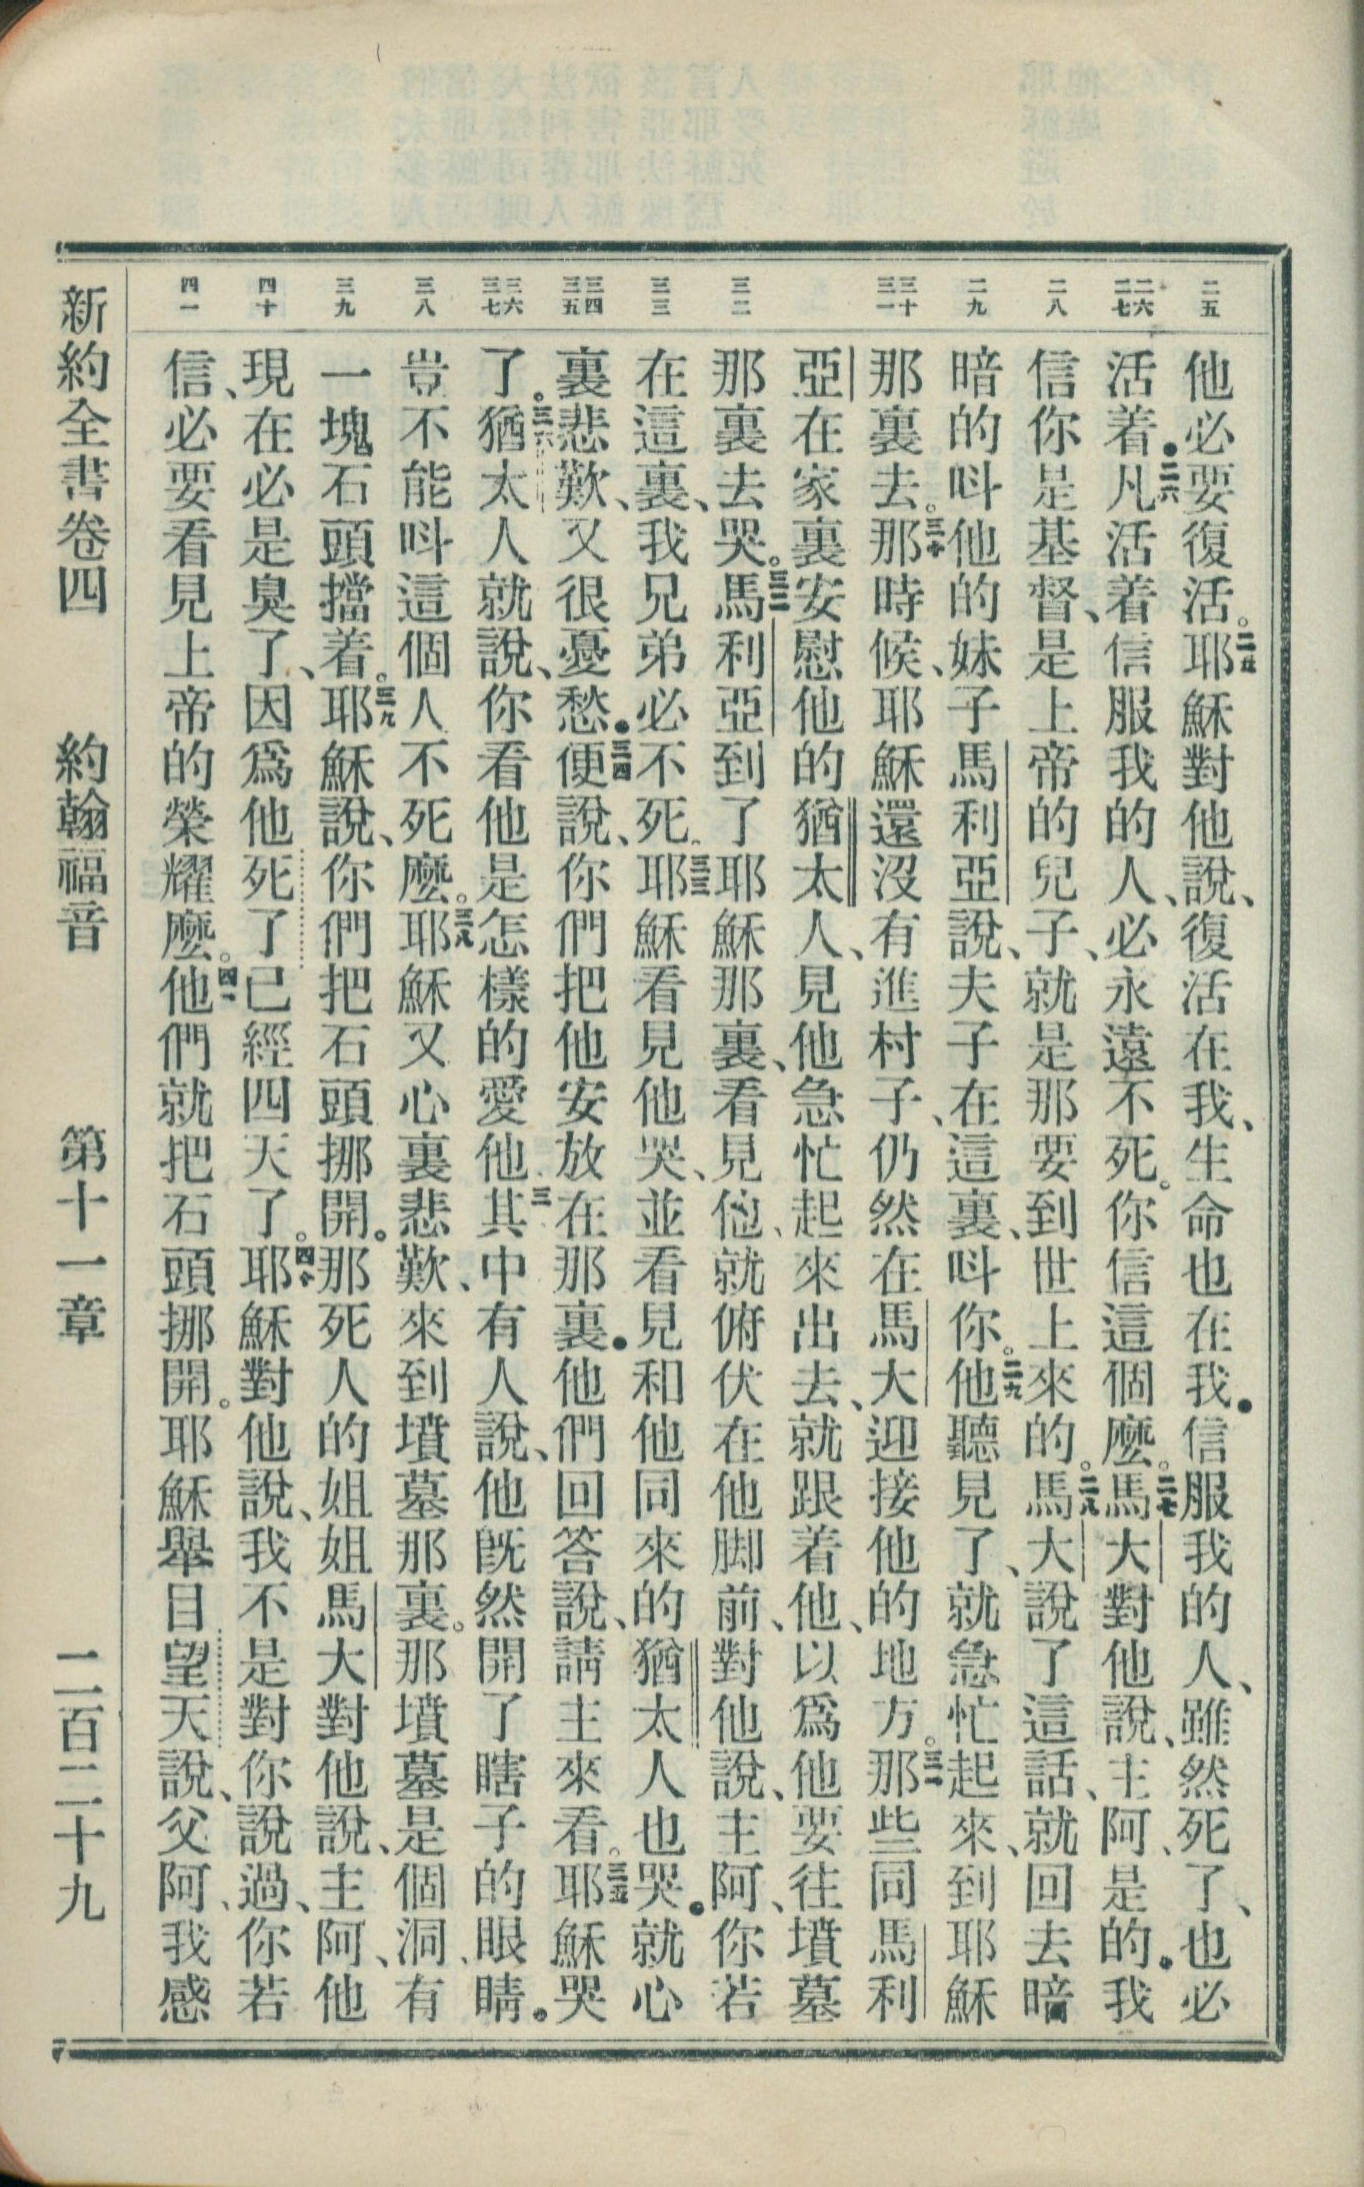 二五
二六
二七
二八
二九
三十
三一
三二
三三
三四
三五
三六
三七
三八
三九
四十
四一
他必要復活。二五耶穌對他說、復活在我、生命也在我．信服我的人、雖然死了、也必
活着．二六凡活着信服我的人、必永遠不死。你信這個麽。二七馬大對他說、主阿、是的．我
信你是基督、是上帝的兒子、就是那要到世上來的。二八馬大說了這話、就回去暗
暗的呌他的妹子馬利亞說、夫子在這裏、呌你。二九他聽見了、就急忙起來、到耶穌
那裏去。三十那時候、耶穌還沒有進村子、仍然在馬大迎接他的地方。三一那些同馬利
亞在家裏安慰他的猶太人、見他急忙起來出去、就跟着他、以爲他要往墳墓
那裏去哭。三二馬利亞到了耶穌那裏、看見他、就俯伏在他脚前、對他說、主阿、你若
在這裏、我兄弟必不死。三三耶穌看見他哭、並看見和他同來的猶太人也哭．就心
裏悲歎、又很憂愁．三四便說、你們把他安放在那裏．他們回答說、請主來看。三五耶穌哭
了。三六猶太人就說、你看他是怎樣的愛他三其中有人說、他旣然開了瞎子的眼睛．
豈不能呌這個人不死麽。三八耶穌又心裏悲歎、來到墳墓那裏。那墳墓是個洞、有
一塊石頭擋着。三九耶穌說、你們把石頭挪開。那死人的姐姐馬大對他說、主阿、他
現在必是臭了、因爲他死了已經四天了。四十耶穌對他說、我不是對你說過、你若
信、必要看見上帝的榮耀麽。四一他們就把石頭挪開。耶穌舉目望天說、父阿、我感
新約全書卷四 約翰福音 第十一章 二百二十九